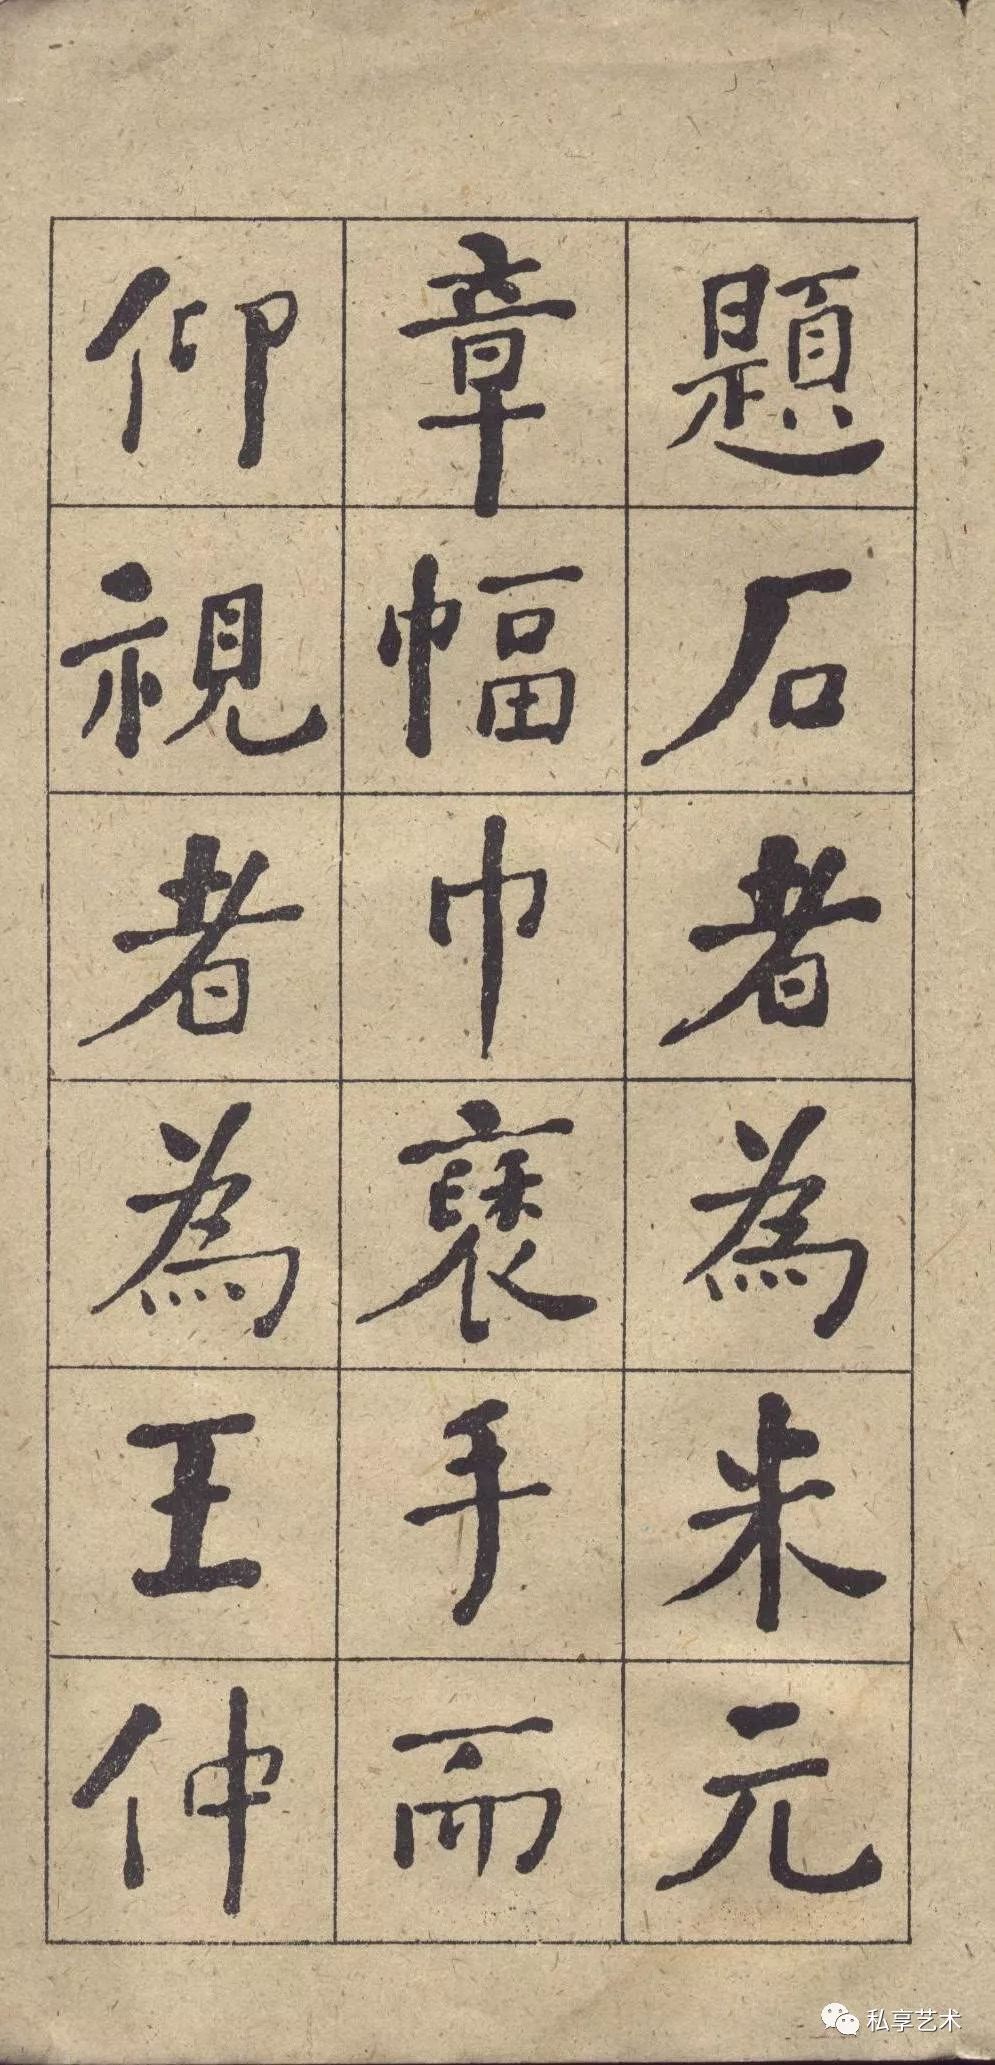 題石者為米元
章幅巾褎手而
仰視者為王仲
私享艺术